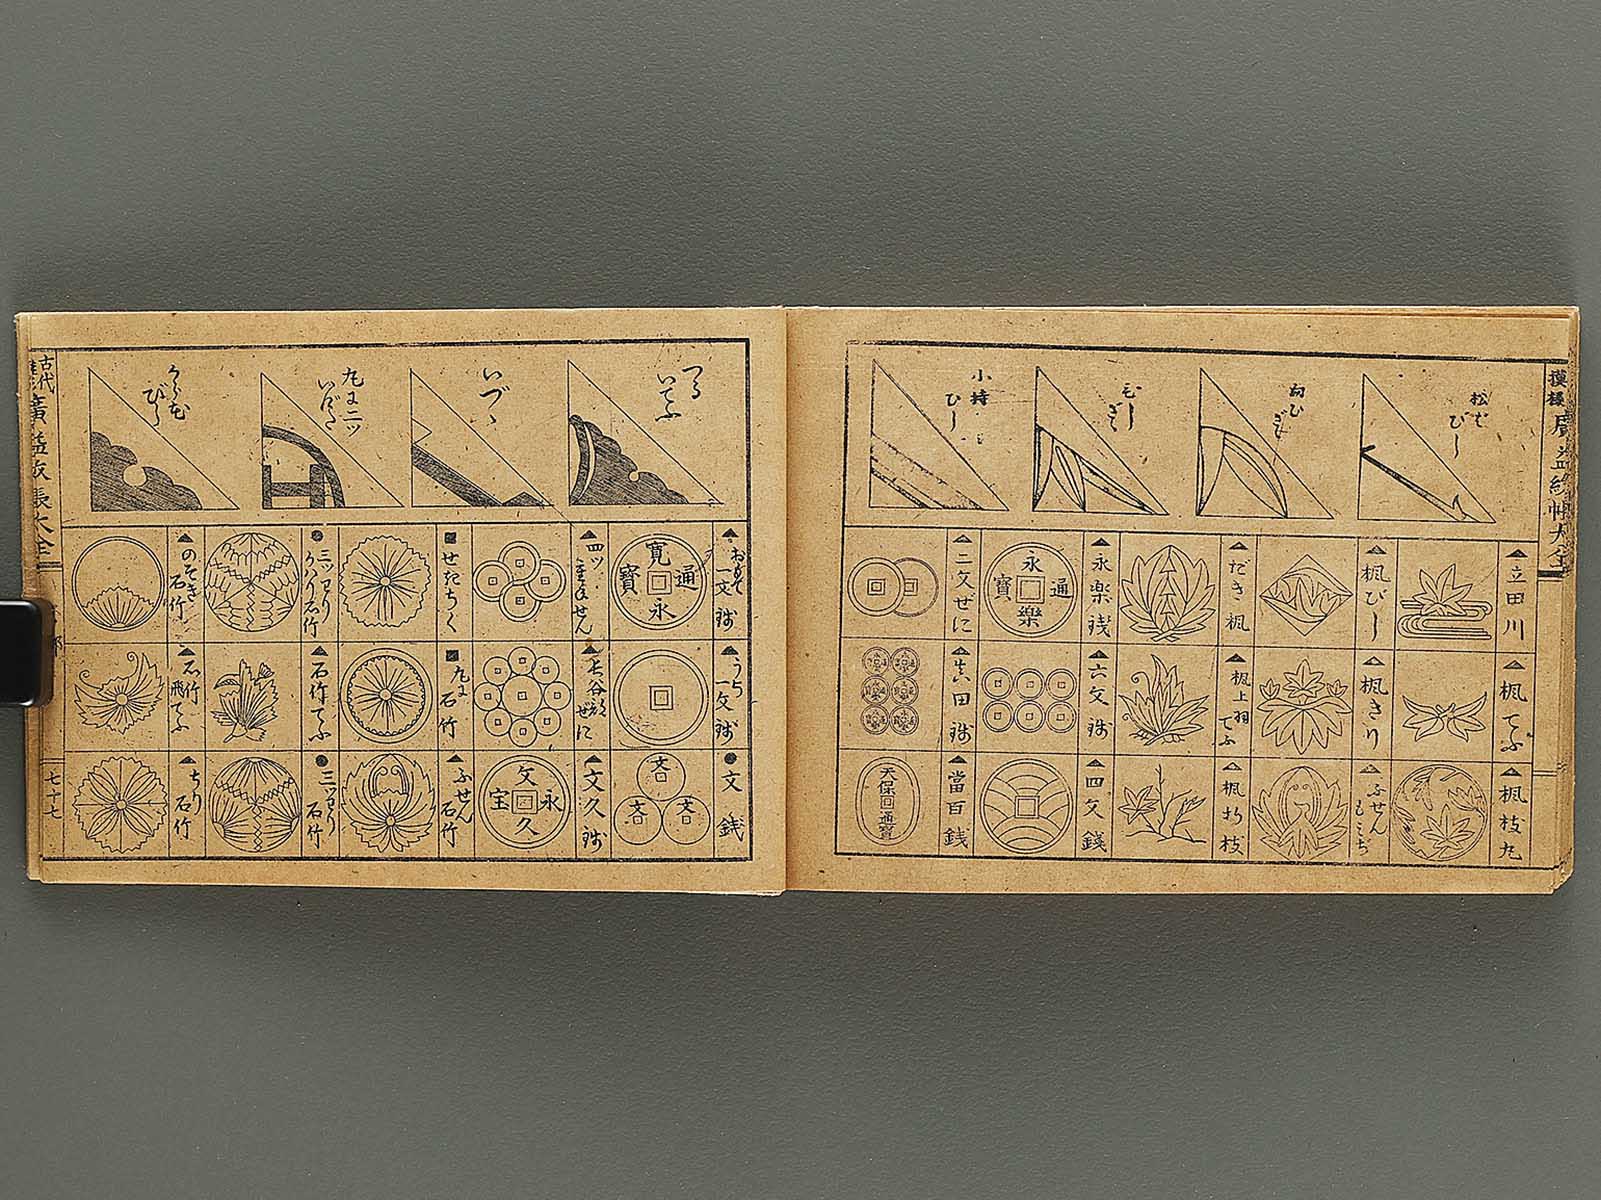 模様
廣益紋帳大全
松皮
びし
向ひ
ぎし
小持
ひし
立田川
楓びし
だき楓
永楽銭
永樂通寳
二文ぜに
楓てふ
楓きり
楓上羽
てふ
六文銭
真田銭
楓枝丸
ふせん
もみぢ
楓折枝
四文銭
當百銭
天保通寳
つる
いてふ
いづゝ
丸に二ツ
いげた
からはな
びし
おもて
一文銭
寛永通寳
四ツ
重ねせん
せきちく
三ツわり
石竹
のぞき
石竹
うら
一文銭
長谷部
ぜに
丸に
石竹
石竹てふ
石竹
飛てふ
文銭
文
文
文
文久銭
文久永宝
ふせん
石竹
三ツわり
石竹
石竹
古代
廣益紋帳大全
七十七